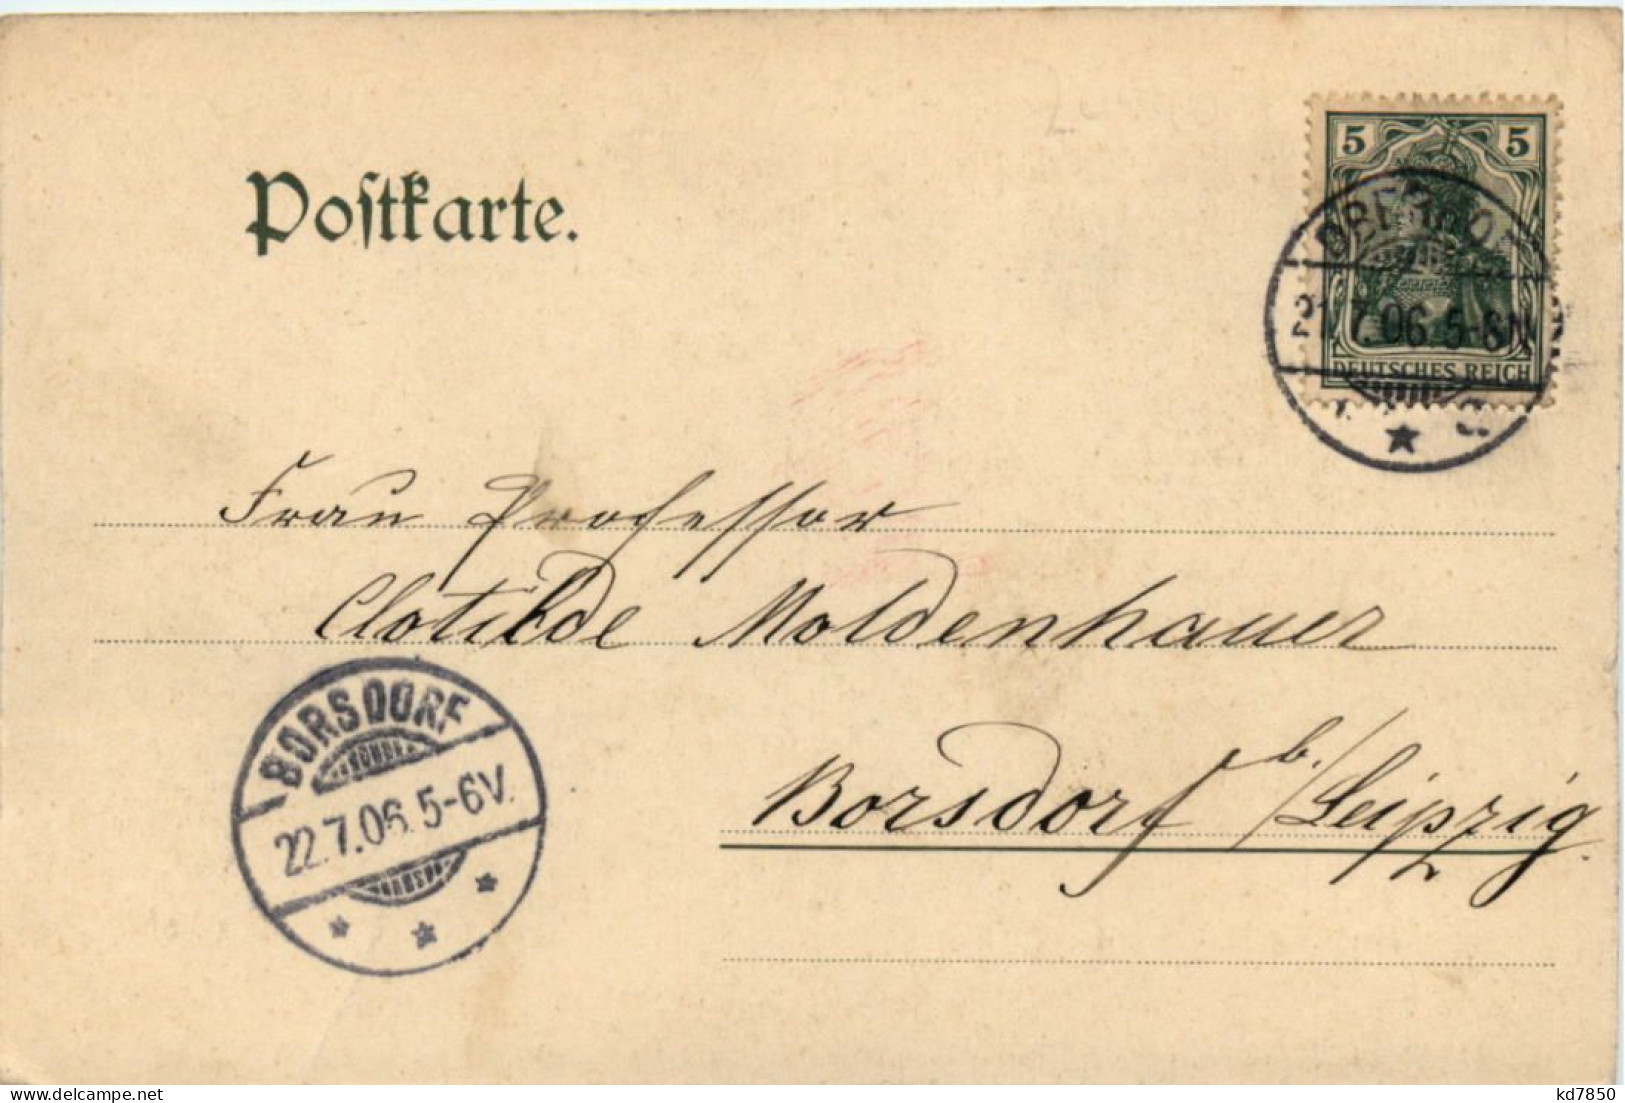 Postkarte.
5 5
21.7.06. 5-6N.
DEUTSCHES REICH
Frau Professor
Clotilde Moldenhauer
BORSDORF
22.7.06. 5-6V.
Borsdorf b./Leipzig.
kd7850